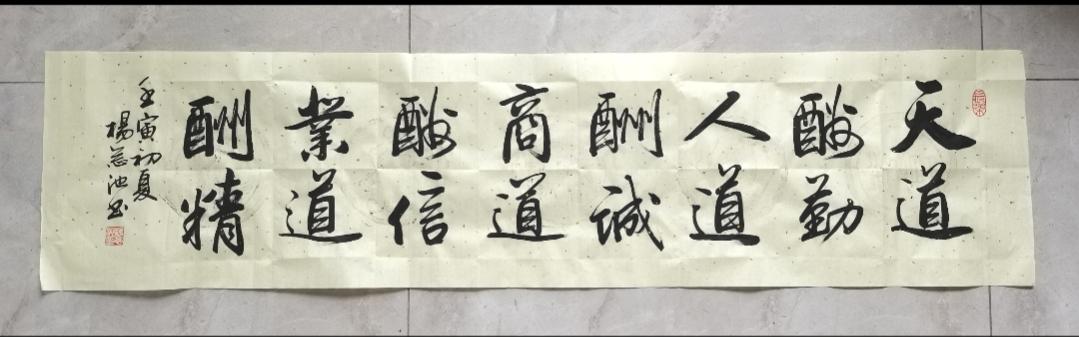 天道
酬勤
人道
酬誠
商道
酬信
業道
酬精
壬寅初夏
楊蕊池书